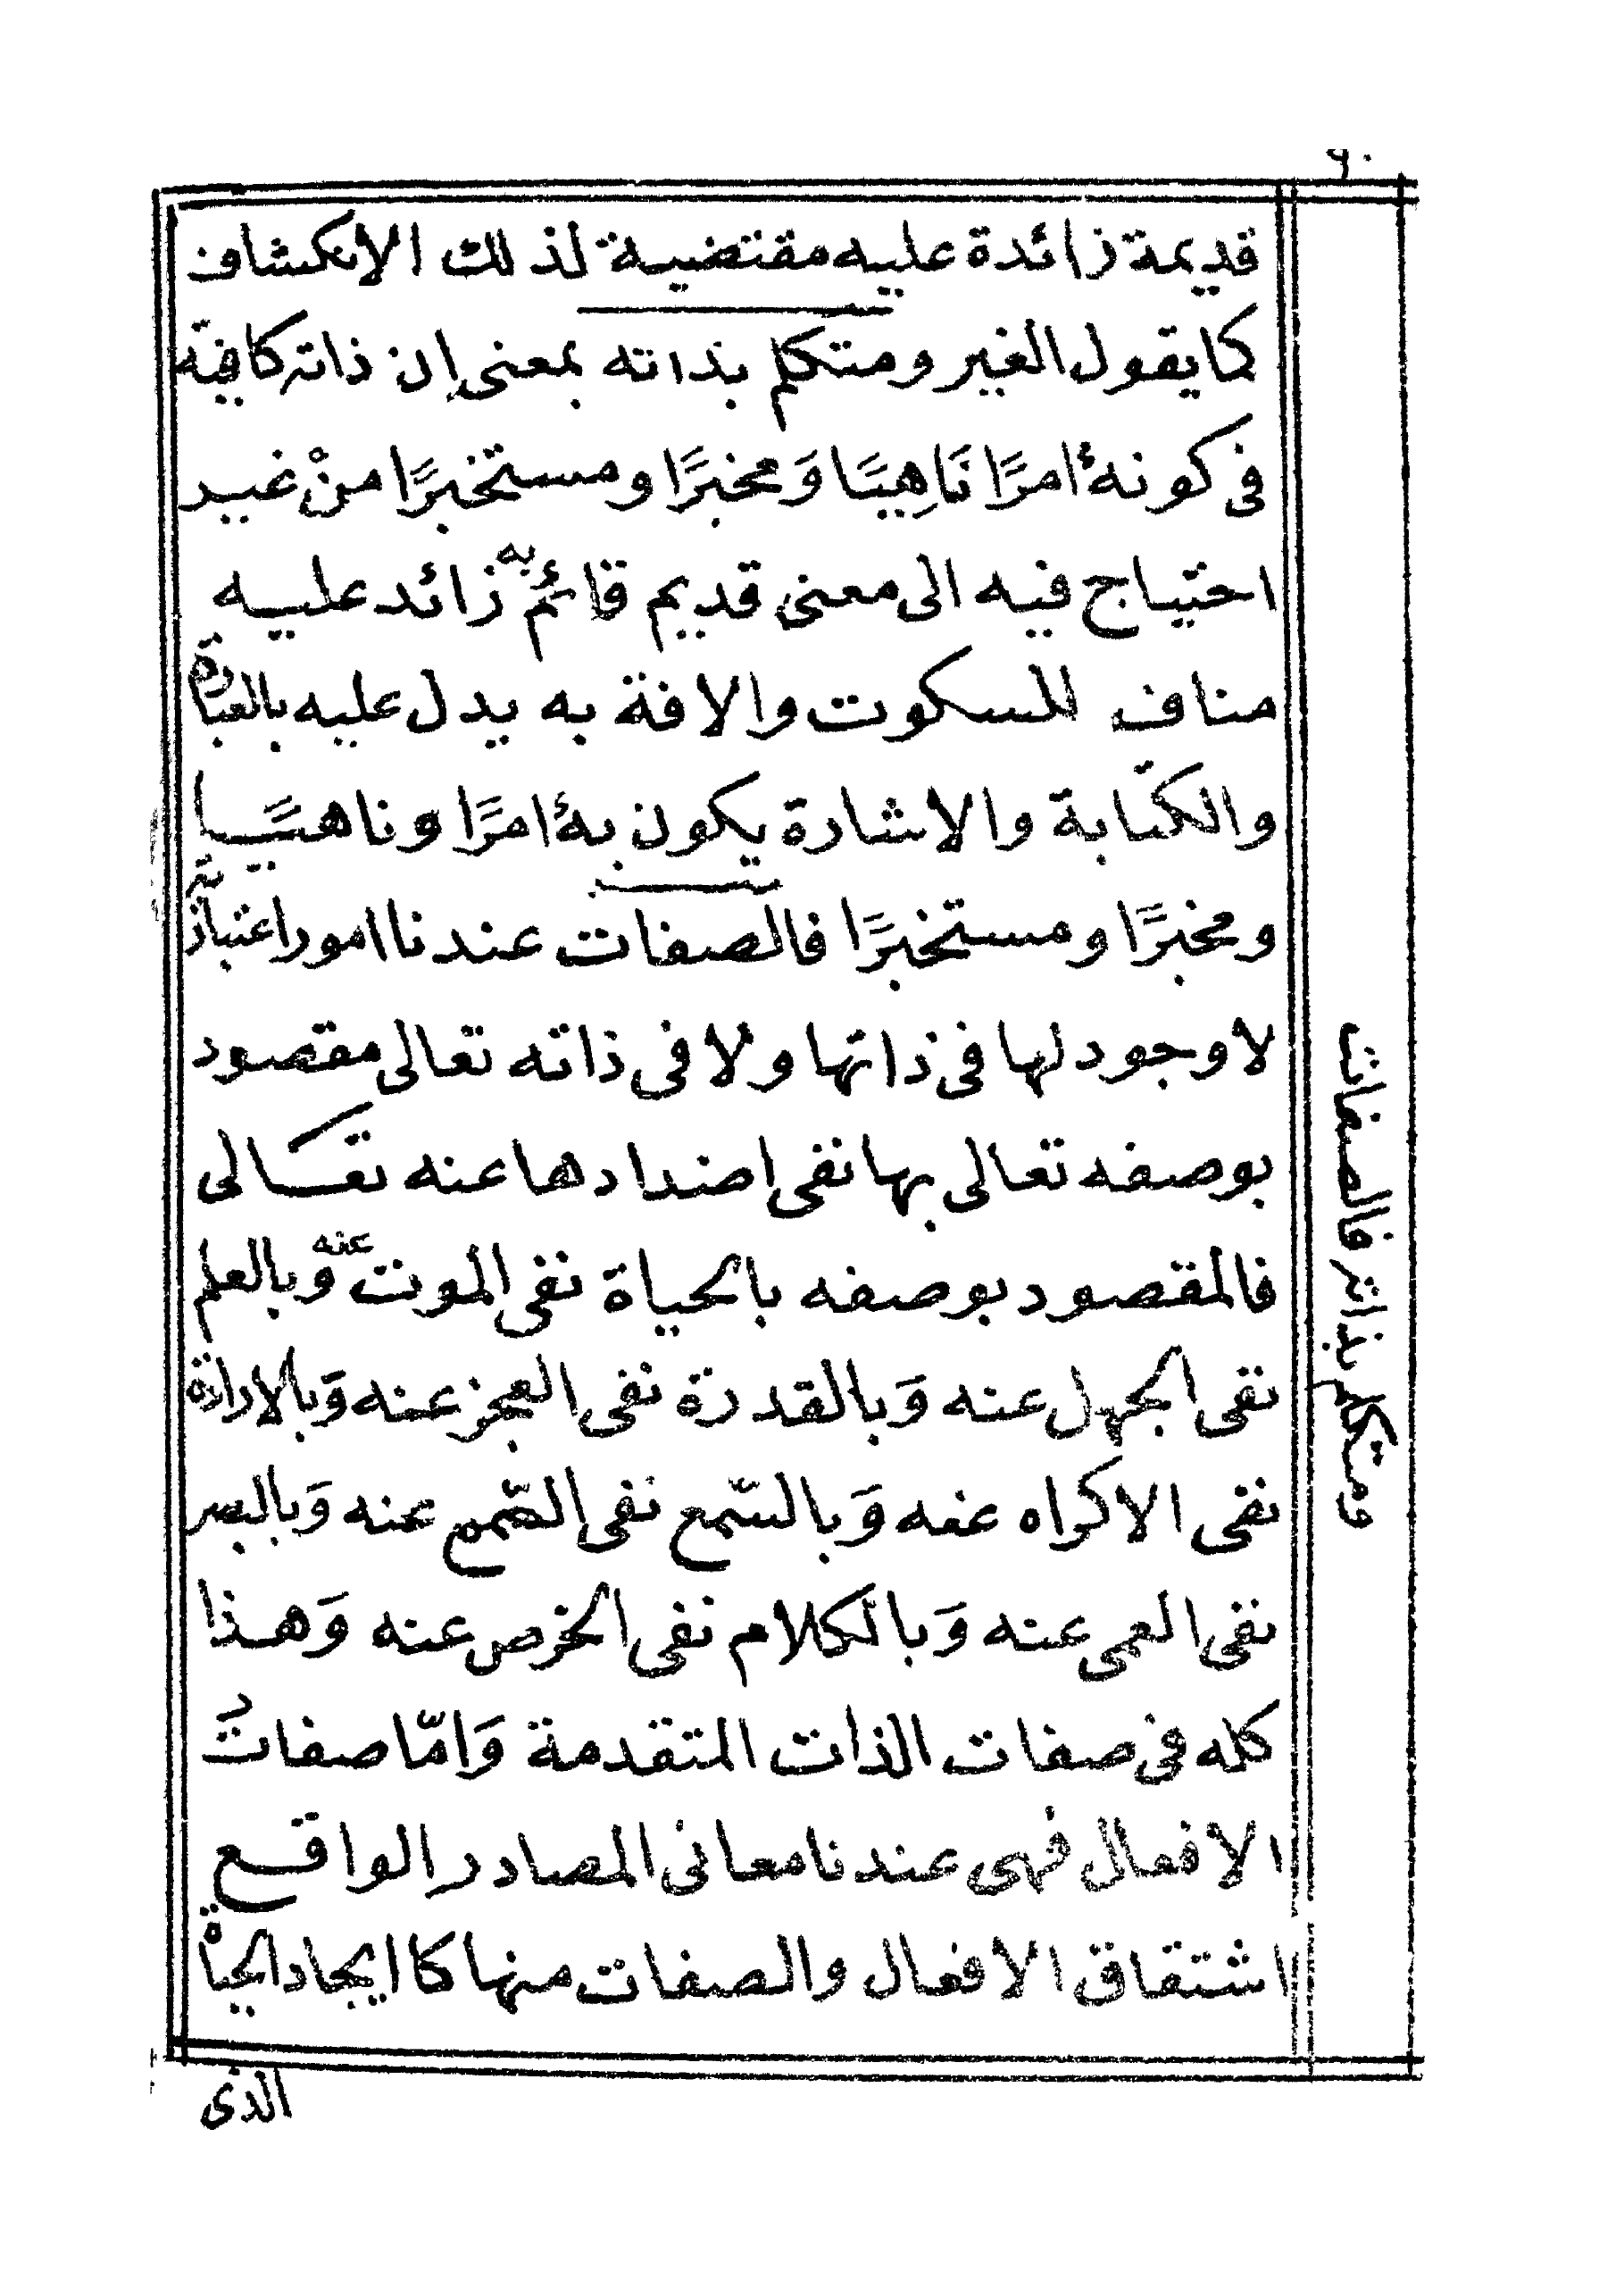 ٦٠
قديمة زائدة عليه مقتضية لذلك الانكشاف
كما يقول الغير ومتكلم بذاته بمعنى إن ذاته كافية
فى كونهٔ امرًا نَاهِيًا وَمخبرًا ومستخبرًا منْ غير
احتياج فيه الى معنى قديم قائم به زائد عليه
مناف للسكوت والافة به يدل عليه بالعبارة
والكتابة والاشارة يكون بهٔ امرًا وناهيًا
ومخبرًا ومستخبرًا فالصفات عندنا امور اعتبارية
لا وجود لها فى ذاتها ولا فى ذاته تعالى مقصود
بوصفه تعالى بها نفى اضدادها عنه تعَالى
فالمقصود بوصفه بالحياة نفى الموت عنه وبالعلم
نفى الجهل عنه وَبالقدرة نفى العجز عنه وَبالارادة
نفى الاكراه عنه وَبالسّمع نفى الصّمم عنه وَبالبصر
نفى العمى عنه وَبالكلام نفى الخرص عنه وَهذا
كله فى صفات الذات المتقدمة وَامّا صفات
الافعال فهى عندنا معانى المصادر الواقع
اشتقاق الافعال والصفات منها كا ايجاد الحياة
الذى
ومتكلم بذاته فالصفات